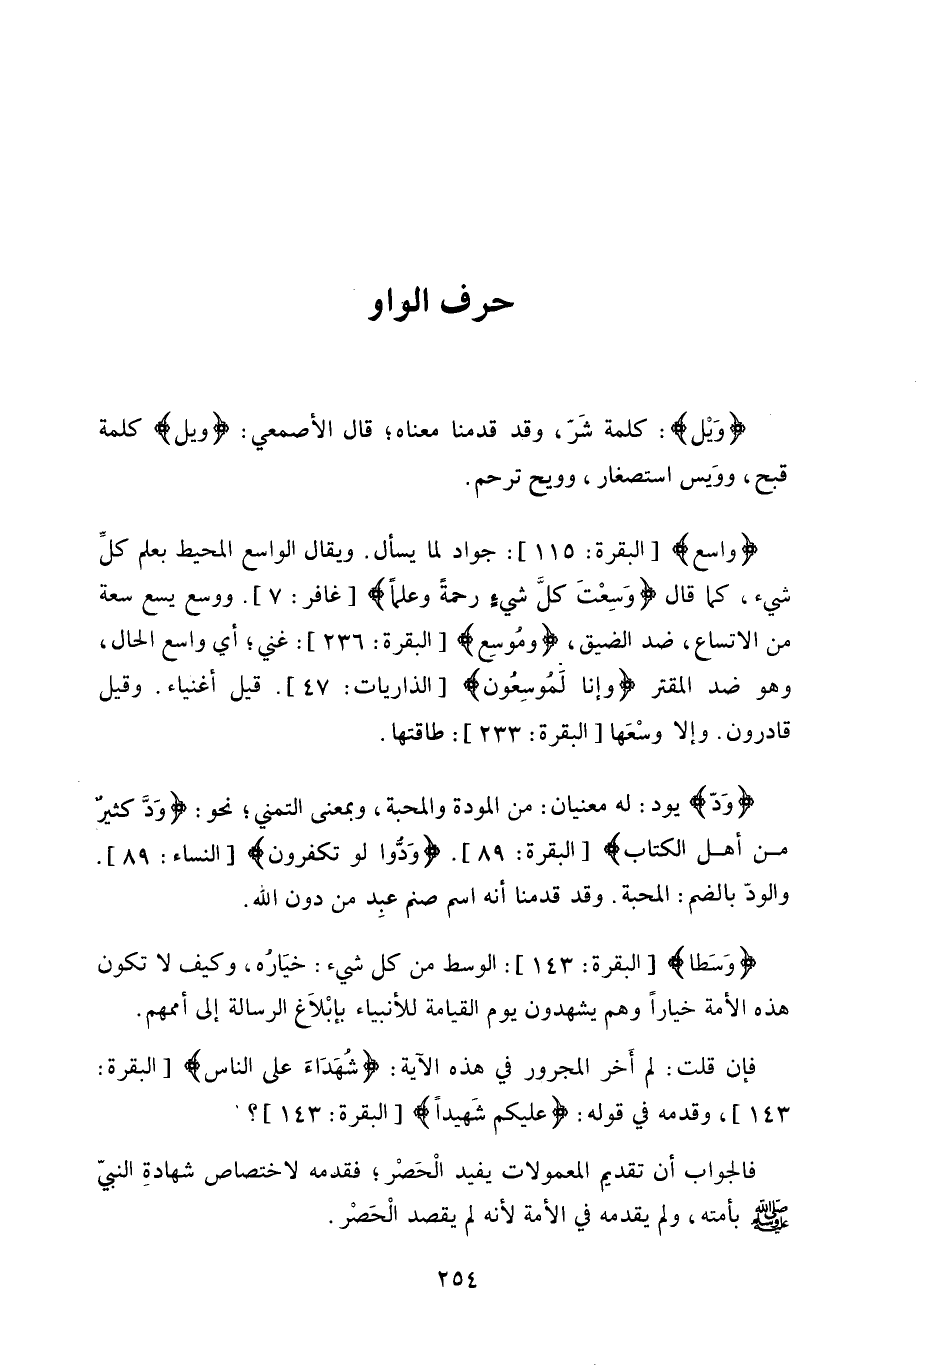 حرف الواو
﴿وَيْل﴾: كلمة شَرّ، وقد قدمنا معناه؛ قال الأصمعي: ﴿ويل﴾ كلمة
قبح، ووَيس استصغار، وويح ترحم.
﴿واسع﴾ [البقرة: ١١٥]: جواد لما يسأل. ويقال الواسع المحيط بعلم كلِّ
شيء، كما قال ﴿وَسِعْتَ كلَّ شيءٍ رحمةً وعلماً﴾ [غافر: ٧]. ووسع يسع سعة
من الاتساع، ضد الضيق، ﴿ومُوسِع﴾ [البقرة: ٢٣٦]: غني؛ أي واسع الحال،
وهو ضد المقتر ﴿وإنا لَمُوسِعُون﴾ [الذاريات: ٤٧]. قيل أغنياء. وقيل
قادرون. وإلا وسْعَها [البقرة: ٢٣٣]: طاقتها.
﴿وَدّ﴾ يود: له معنيان: من المودة والمحبة، وبمعنى التمني؛ نحو: ﴿وَدَّ كثيرٌ
مـن أهـل الكتاب﴾ [البقرة: ٨٩]. ﴿وَدُّوا لو تكفرون﴾ [النساء: ٨٩].
والودّ بالضم: المحبة. وقد قدمنا أنه اسم صنم عبِد من دون الله.
﴿وَسَطا﴾ [البقرة: ١٤٣]: الوسط من كل شيء: خيَارُه، وكيف لا تكون
هذه الأمة خياراً وهم يشهدون يوم القيامة للأنبياء بإبْلاَغ الرسالة إلى أممهم.
فإن قلت: لم أَخر المجرور في هذه الآية: ﴿شُهَدَاءَ على الناس﴾ [البقرة:
١٤٣]، وقدمه في قوله: ﴿عليكم شَهيداً﴾ [البقرة: ١٤٣]؟
فالجواب أن تقديم المعمولات يفيد الْحَصْر؛ فقدمه لاختصاص شهادةِ النبيّ
ﷺ بأمته، ولم يقدمه في الأمة لأنه لم يقصد الْحَصْر.
٢٥٤